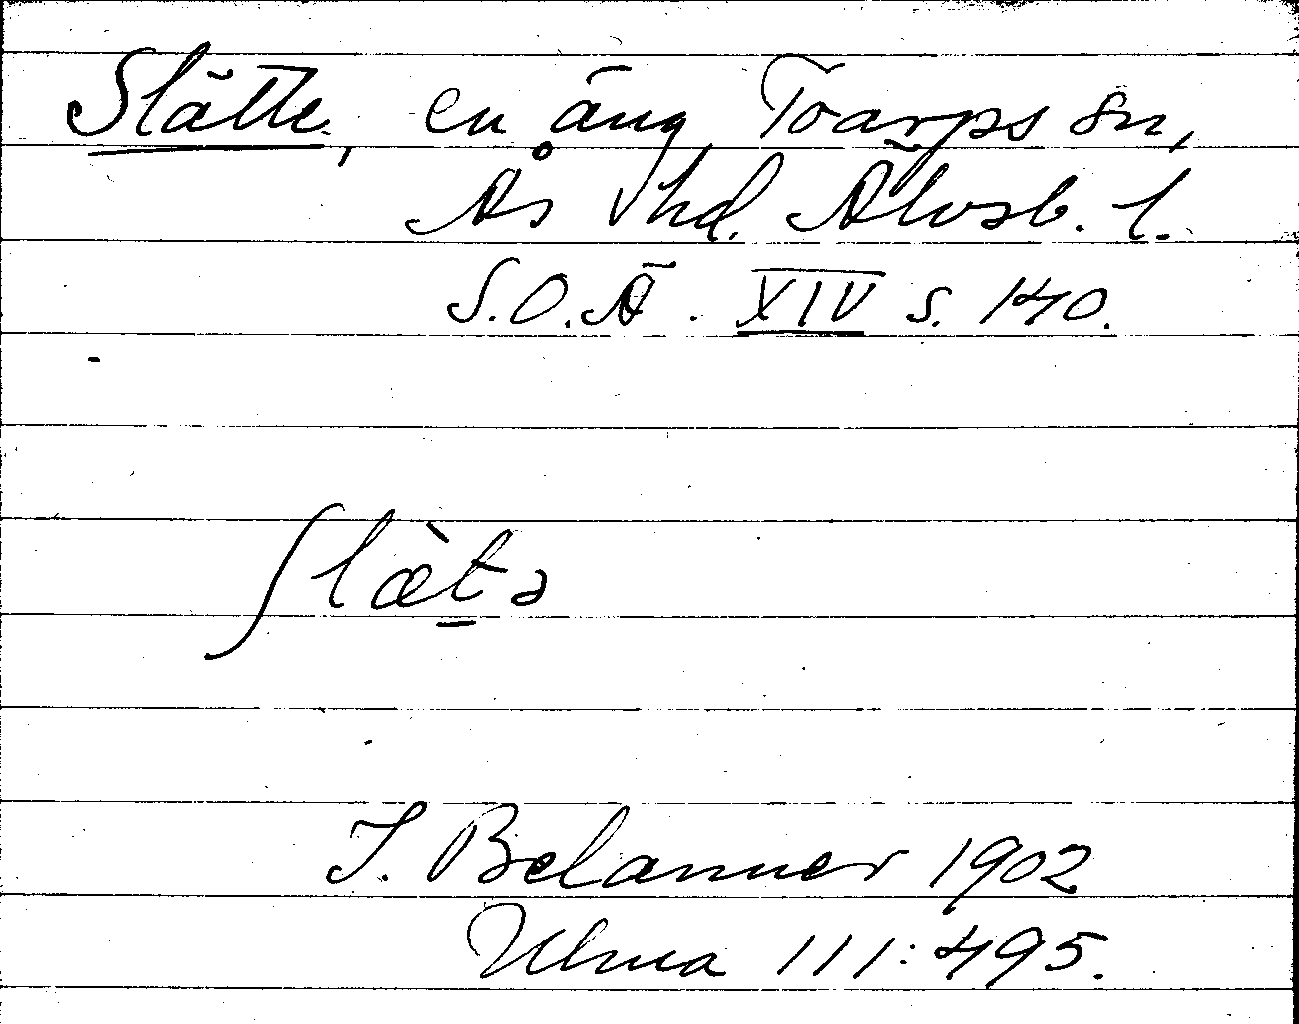 Slätte, en äng Toarps sn,
Ås hd. Älvsb. l.
S.O.Ä. XIV s. 140.
ſlæ̀t̠ə
J. Belanner 1902
Ulma 111:495.